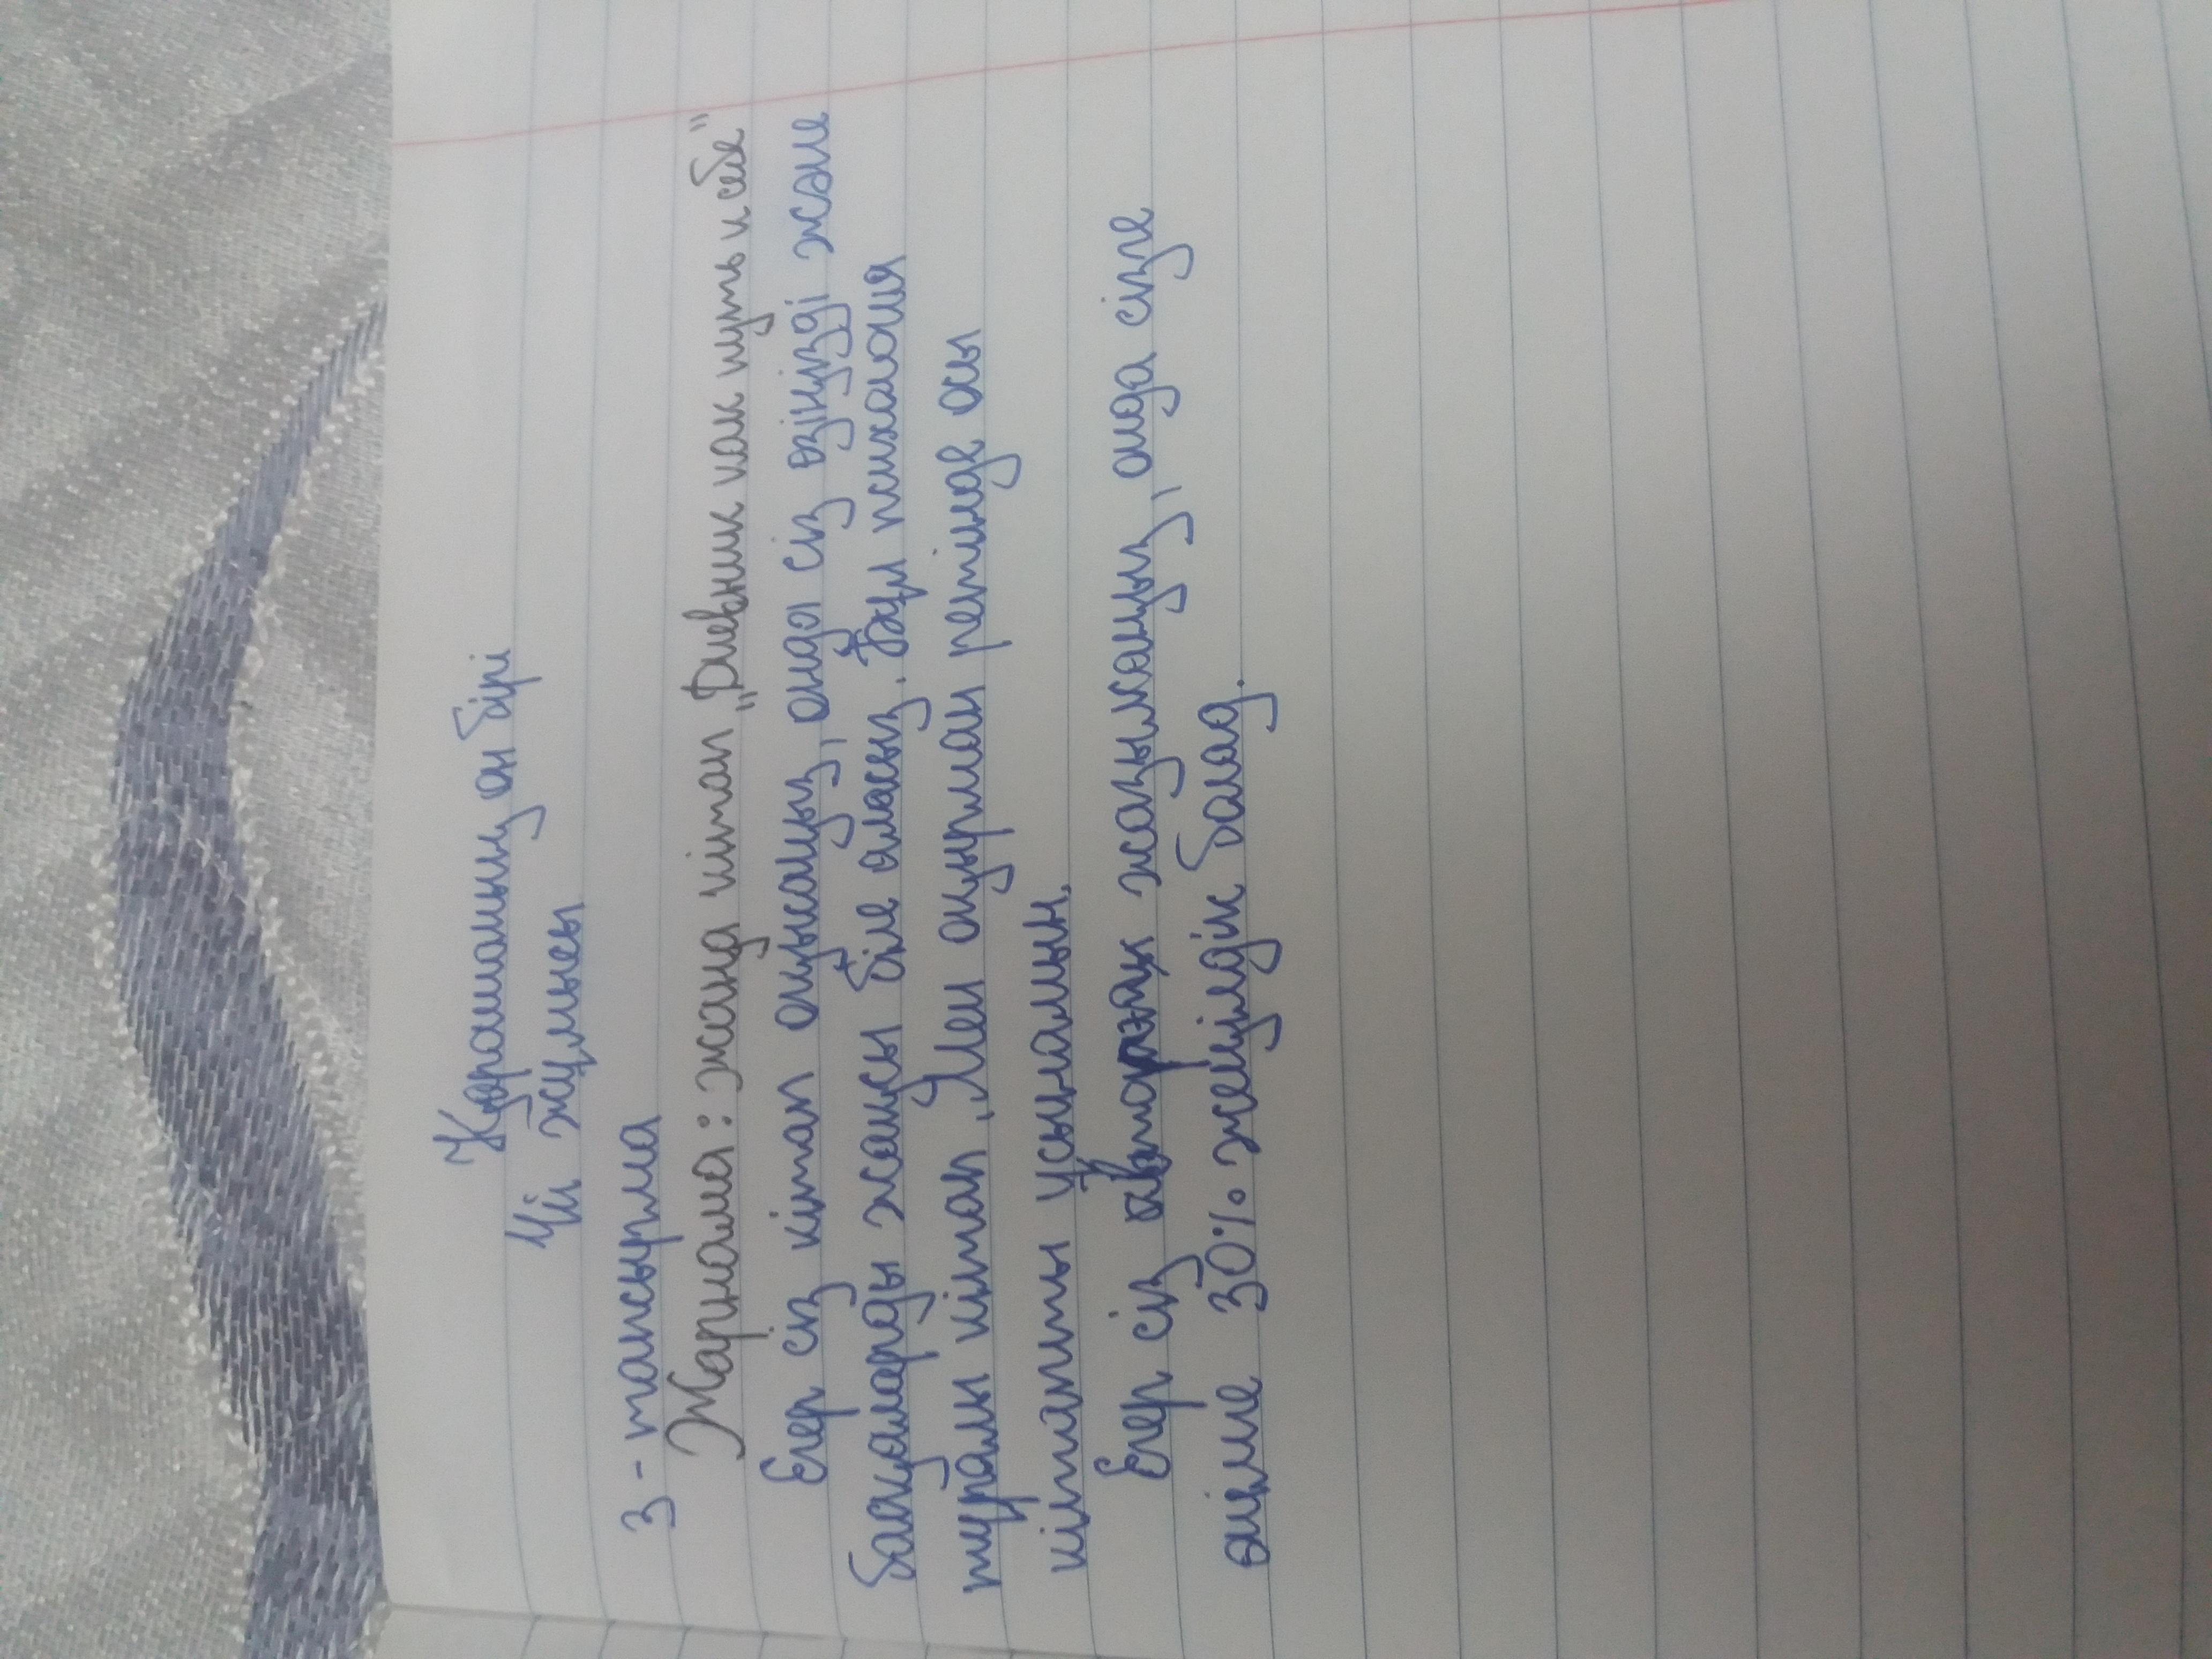 Қарашаның он бірі
Үй жұмысы
3 - тапсырма
Жарнама: жаңа кітап "Дневник как путь и себе"
Егер сіз кітап оқысаңыз, онда сіз өзіңізді және
басқаларды жақсы біле аласыз. Бұл психалогия
туралы кітап. Мен оқырман ретінде осы
кітапты ұсынамын.
Егер сіз жазылсаңыз, онда сізге
өнімге 30% жеңілдік балад.